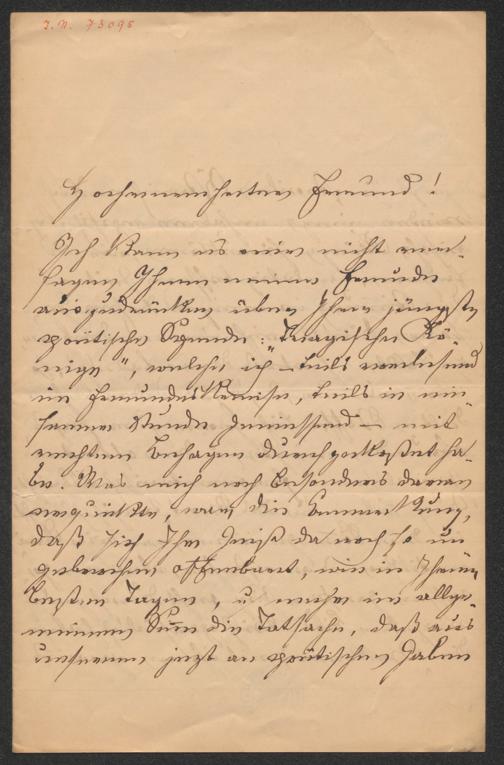 I. N. 73095
Hochverehrter Freund!
Ich kann es mir nicht ver-
sagen Ihnen meine Freude
auszudrücken über Ihre jüngste
poëtische Spende: „Tragische Kö-
nige", welche ich – teils vorlesend
im Freundeskreise, teils in ein-
samer Stunde geniessend – mit
rechtem Behagen durchgekostet ha-
be. Was mich noch besonders daran
erquickte, war die Bemerkung,
daß sich Ihr Geist da noch so un
gebrochen offenbart, wie in Ihren
besten Tagen, u mehr im allge-
meinen Sinn die Tatsache, daß aus
unserem jezt an poëtischen Gaben